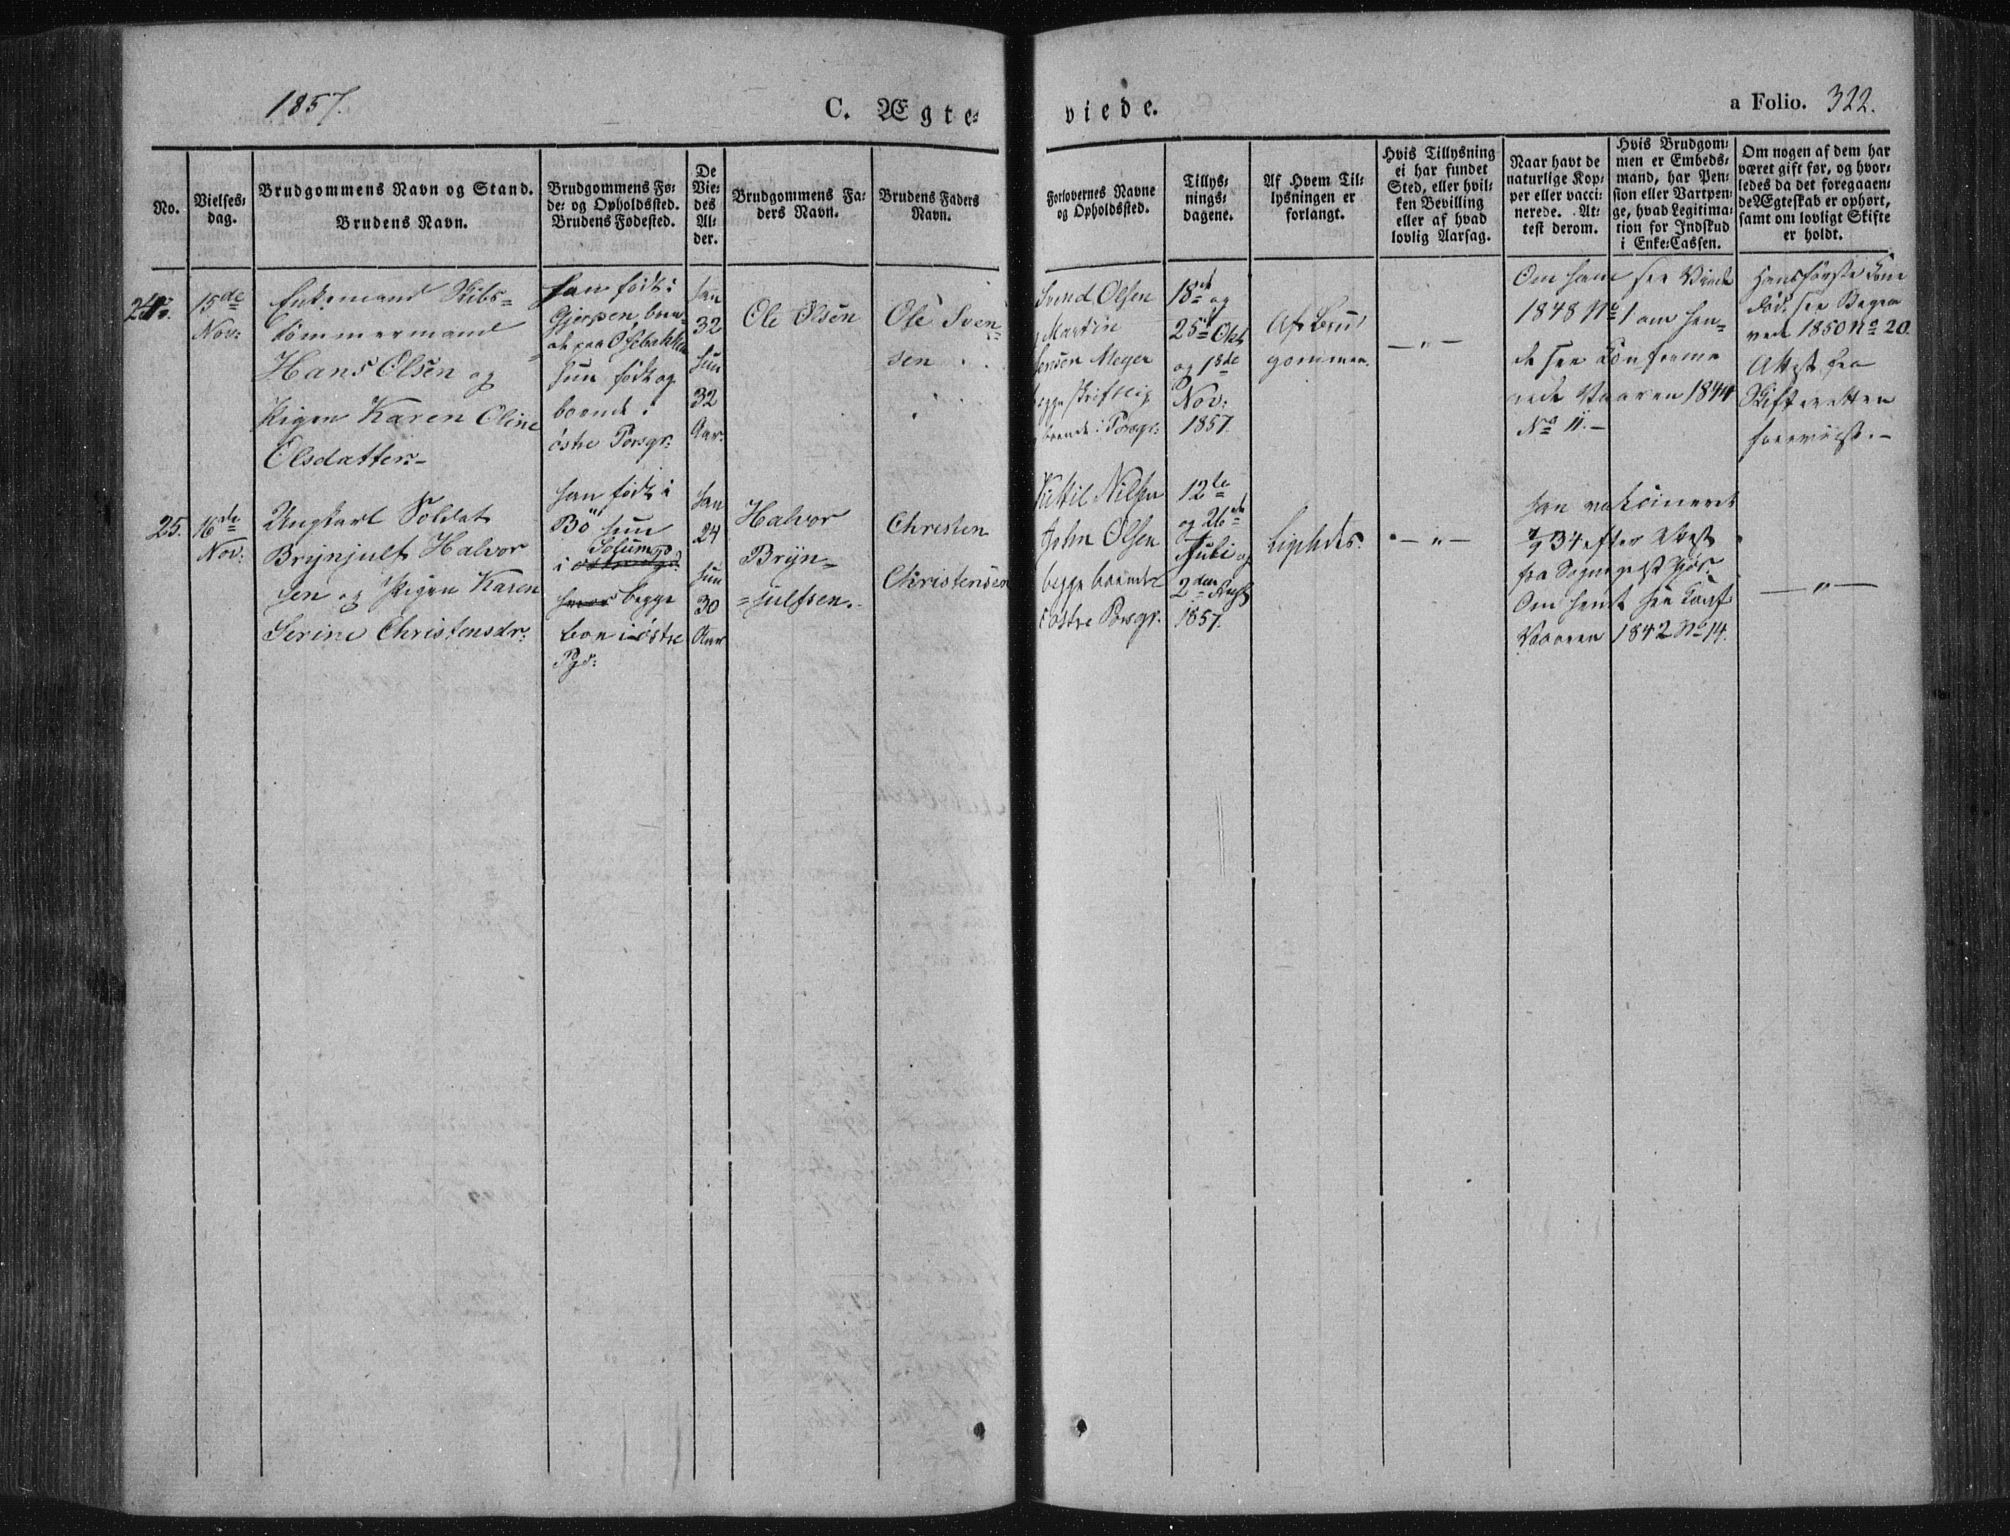 1857.
C. Ægte-
viede.
a Folio. 322.
No.
Vielses-
dag.
Brudgommens Navn og Stand.
Brudens Navn.
Brudgommens Fø-
de- og Opholdssted.
Brudens Fødested.
De
Vie-
des
Al-
der.
Brudgommens Fa-
ders Navn.
Brudens Faders
Navn.
Forlovernes Navne
og Opholdssted.
Tillys-
nings-
dagene.
Af Hvem Til-
lysningen er
forlangt.
Hvis Tillysning
ei har fundet
Sted, eller hvil-
ken Bevilling
eller af hvad
lovlig Aarsag.
Naar havt de
naturlige Kop-
per eller vacci-
nerede. At-
test derom.
Hvis Brudgom-
men er Embeds-
mand, har Pen-
sion eller Vartpen-
ge, hvad Legitima-
tion for Indskud
i Enke-Cassen.
Om nogen af dem har
været gift før, og hvor-
ledes da det foregaaen-
de Ægteskab er ophørt,
samt om lovligt Skifte
er holdt.
24.
15de
Nov:
Enkemand Skibs-
tømmermand
Hans Olsen og
Pigen Karen Oline
Olsdatter.
Han født i
Gjerpen, boen-
de paa Osebakken
Hun født og
boende i
østre Porsgr:
Han
32
Hun
32
Aar.
Ole Olsen
Ole Sven-
sen
Svend Olsen
Martin
Jensen Meyer
begge skriftlig
boende i Porsgr:
18de og
25de Okt
og 1ste
Nov:
1857.
Af Brud
gommen.
— " —
Om ham see Viede
1848 No 1 om hen-
de see Confirme
rede Vaaren 1844
No 11. —
Hans første Kone
død, see Begra
vede 1850 No 20.
Attest fra
Skifteretten
foreviist. —
25.
16de
Nov:
Ungkarl Soldat
Brynjulf Halvor
sen og Pigen Karen
Serine Christensdr:
Han født i
Bö hun
Solum
i
begge
boe i østre
Pgr:
Han
24
Hun
30
Aar
Halvor
Bryn-
julfsen.
Christen
Christensen
Kittil Nilsen
John Olsen
begge boende
i østre Porsgr:
12te
og 26de
Juli og
2den Aug
1857.
Ligeledes.
— " —
Han vakcineret
34 efter Attest
fra Sognepræst
Om hende see Conf
Vaaren 1842 No 14.
— " —